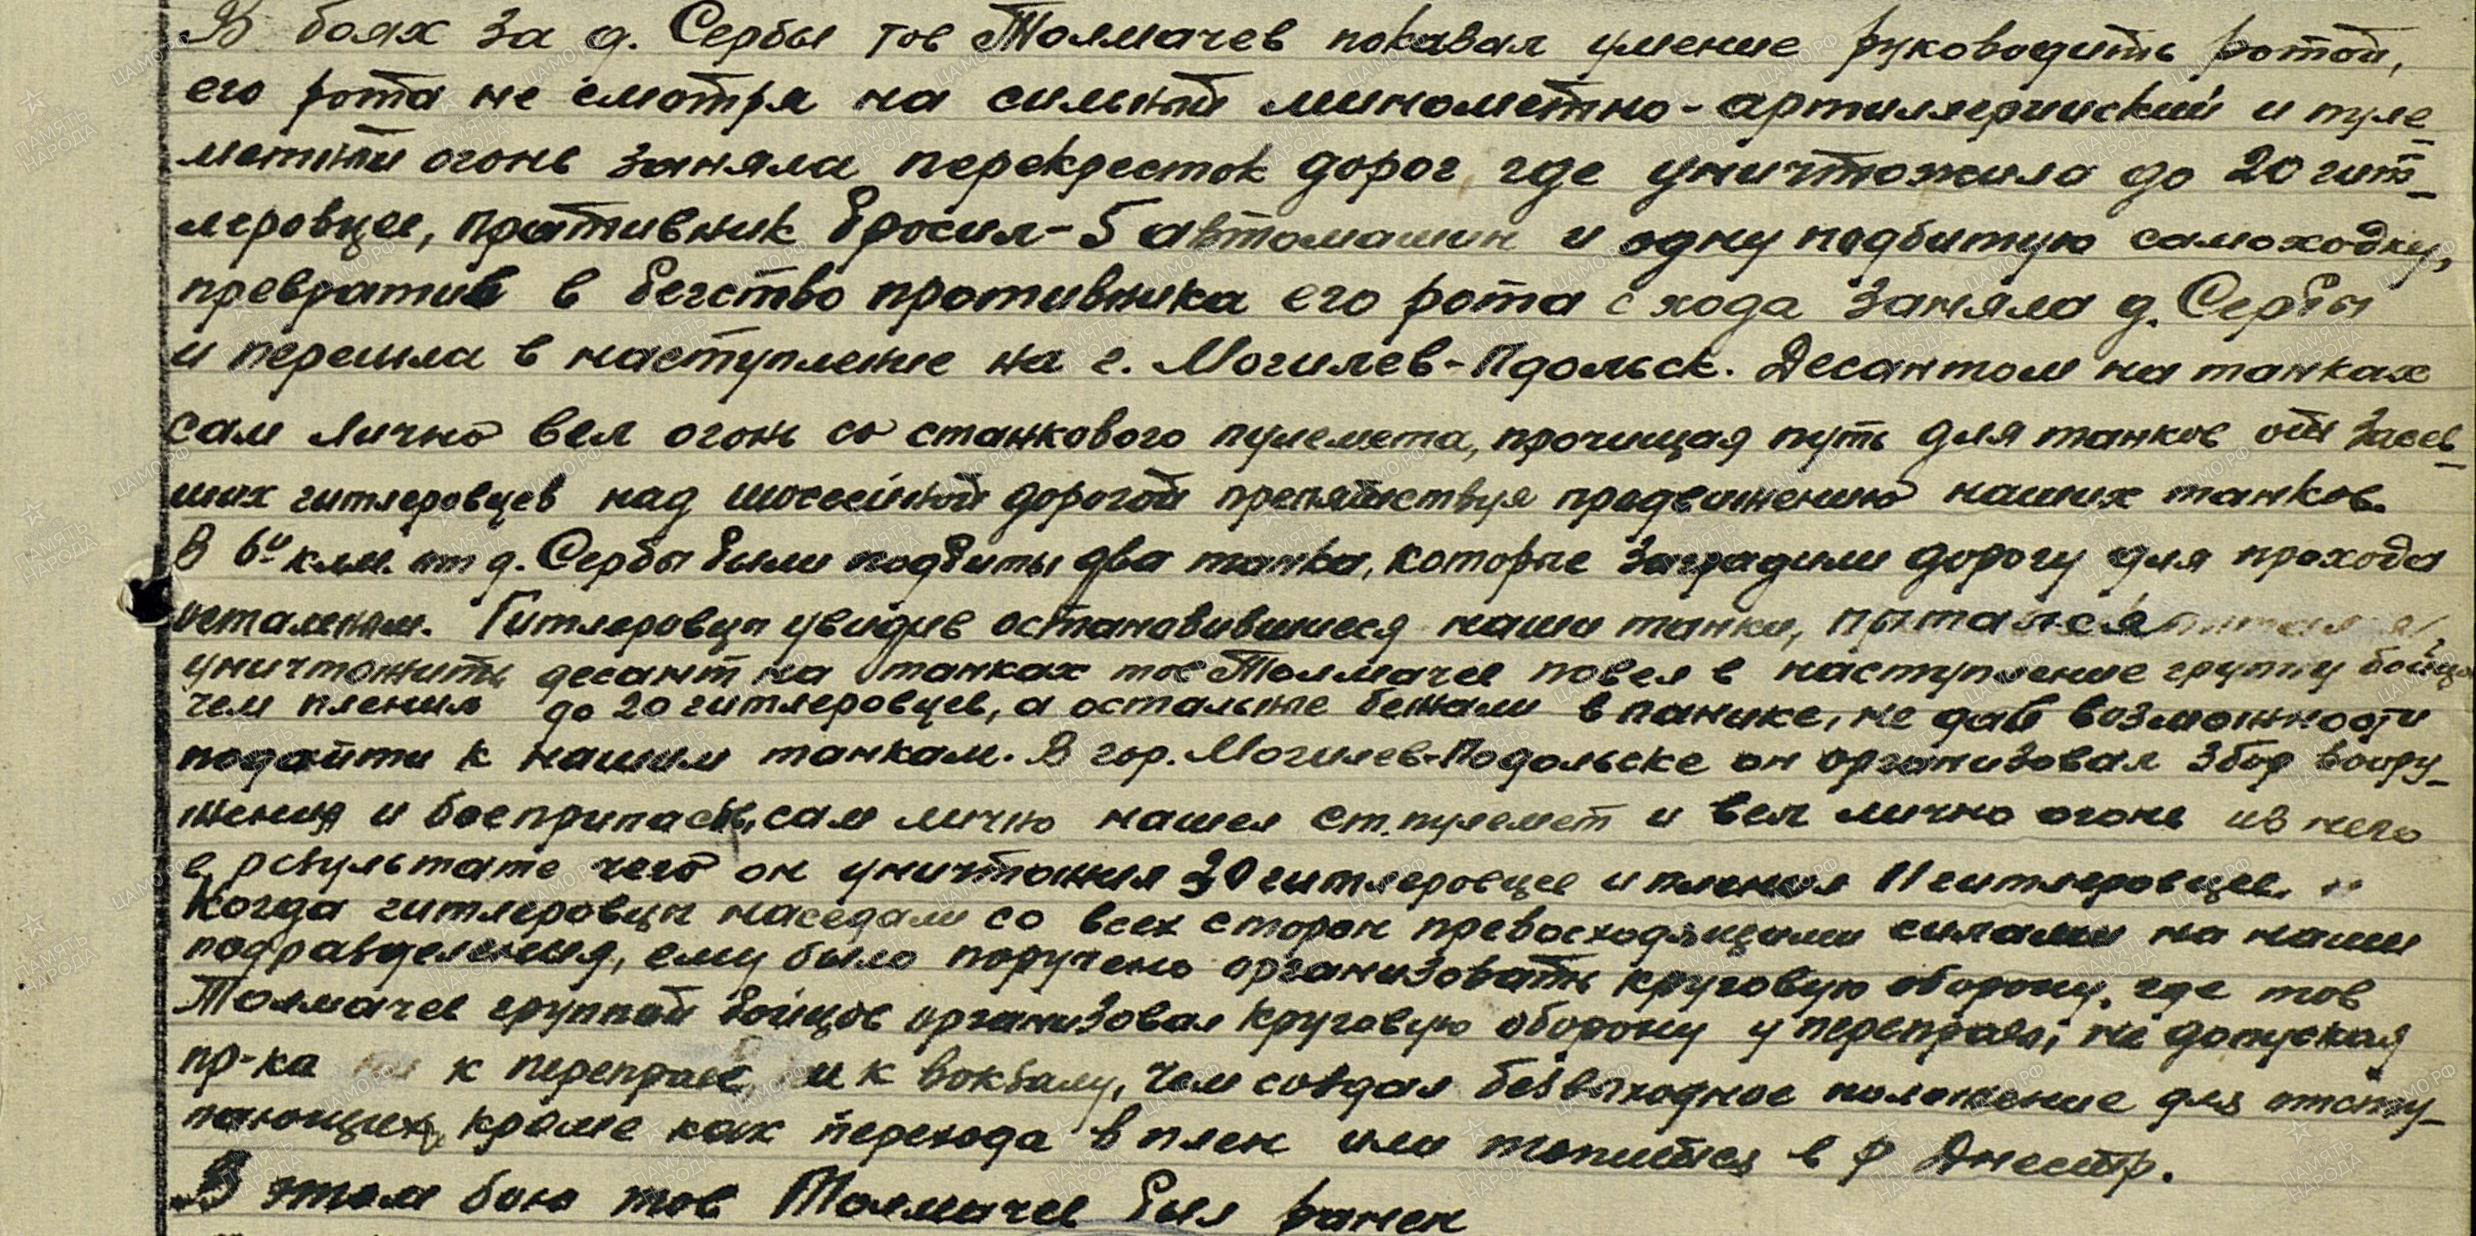 В боях за д. Сербы тов Толмачев показал умение руководить ротой,
его рота не смотря на сильный минометно-артиллерийский и пуле-
метный огонь заняла перекресток дорог где уничтожила до 20 гит-
леровцев, противник бросил-5 автомашин и одну подбитую самоходку,
превратив в бегство противника его рота с хода заняла д. Сербы
и перешла в наступление на г. Могилев-Пдольск. Десантом на танках
сам лично вел огонь со станкового пулемета, прочищая путь для танков от засев-
ших гитлеровцев над шоссейной дорогой препятствуя продвижению наших танков.
В 6и клм. от д. Сербы были подбиты два танка, которые заградили дорогу для прохода
остальным. Гитлеровцы увидев остановившиеся наши танки, пытался
уничтожить десант на танках тов Толмачев повел в наступление группу бойцов
чем пленил до 20 гитлеровцев, а остальные бежали в панике, не дав возможности
подойти к нашим танкам. В гор. Могилев-Подольске он организовал збор воору-
жения и боеприпасов, сам лично нашел ст. пулемет и вел лично огонь из него
в результате чего он уничтожил 30 гитлеровцев и пленил 11 гитлеровцев.
Когда гитлеровцы наседали со всех сторон превосходящими силами на наши
подразделения, ему было поручено организовать круговую оборону, где тов
Толмачев группой бойцов организовал круговую оборону у переправы, не допуская
пр-ка ни к переправе, ни к вокзалу, чем создал безвыходное положение для отсту-
пающих, кроме как перехода в плен или топиться в р Днестр.
В этом бою тов Толмачев был ранен